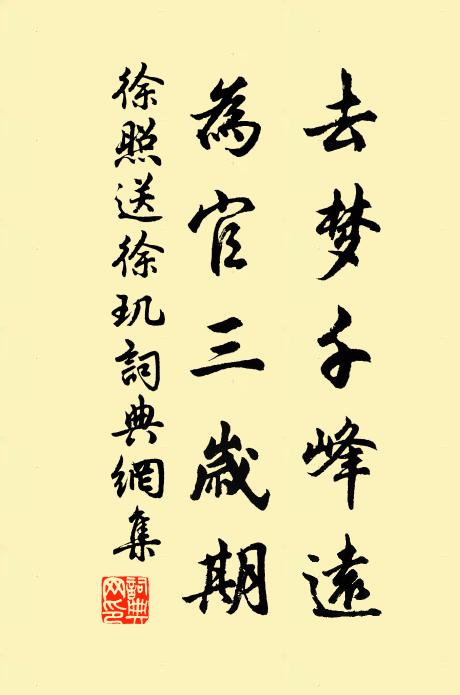 去梦千峰遠
為官三歲期
徐照送徐玑詞典網集
詞典網印